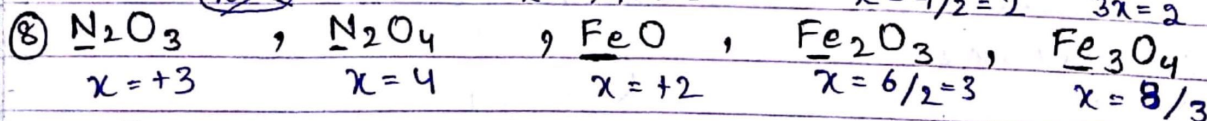 x = 4/2 = 2 3x = 2
⑧ N₂O₃ , N₂O₄ , FeO , Fe₂O₃ , Fe₃O₄
x = +3 x = 4 x = +2 x = 6/2 = 3 x = 8/3